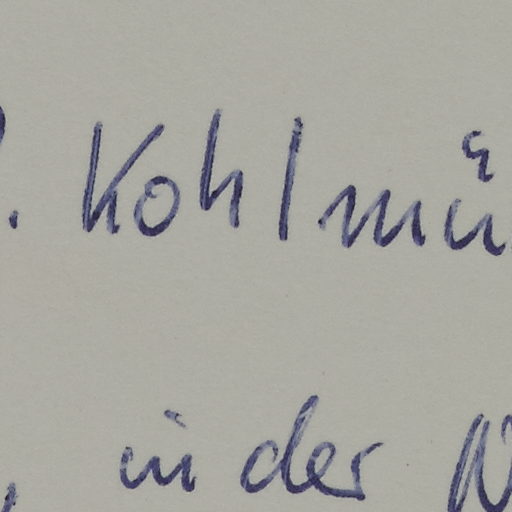 . Kohlmü
, in der W